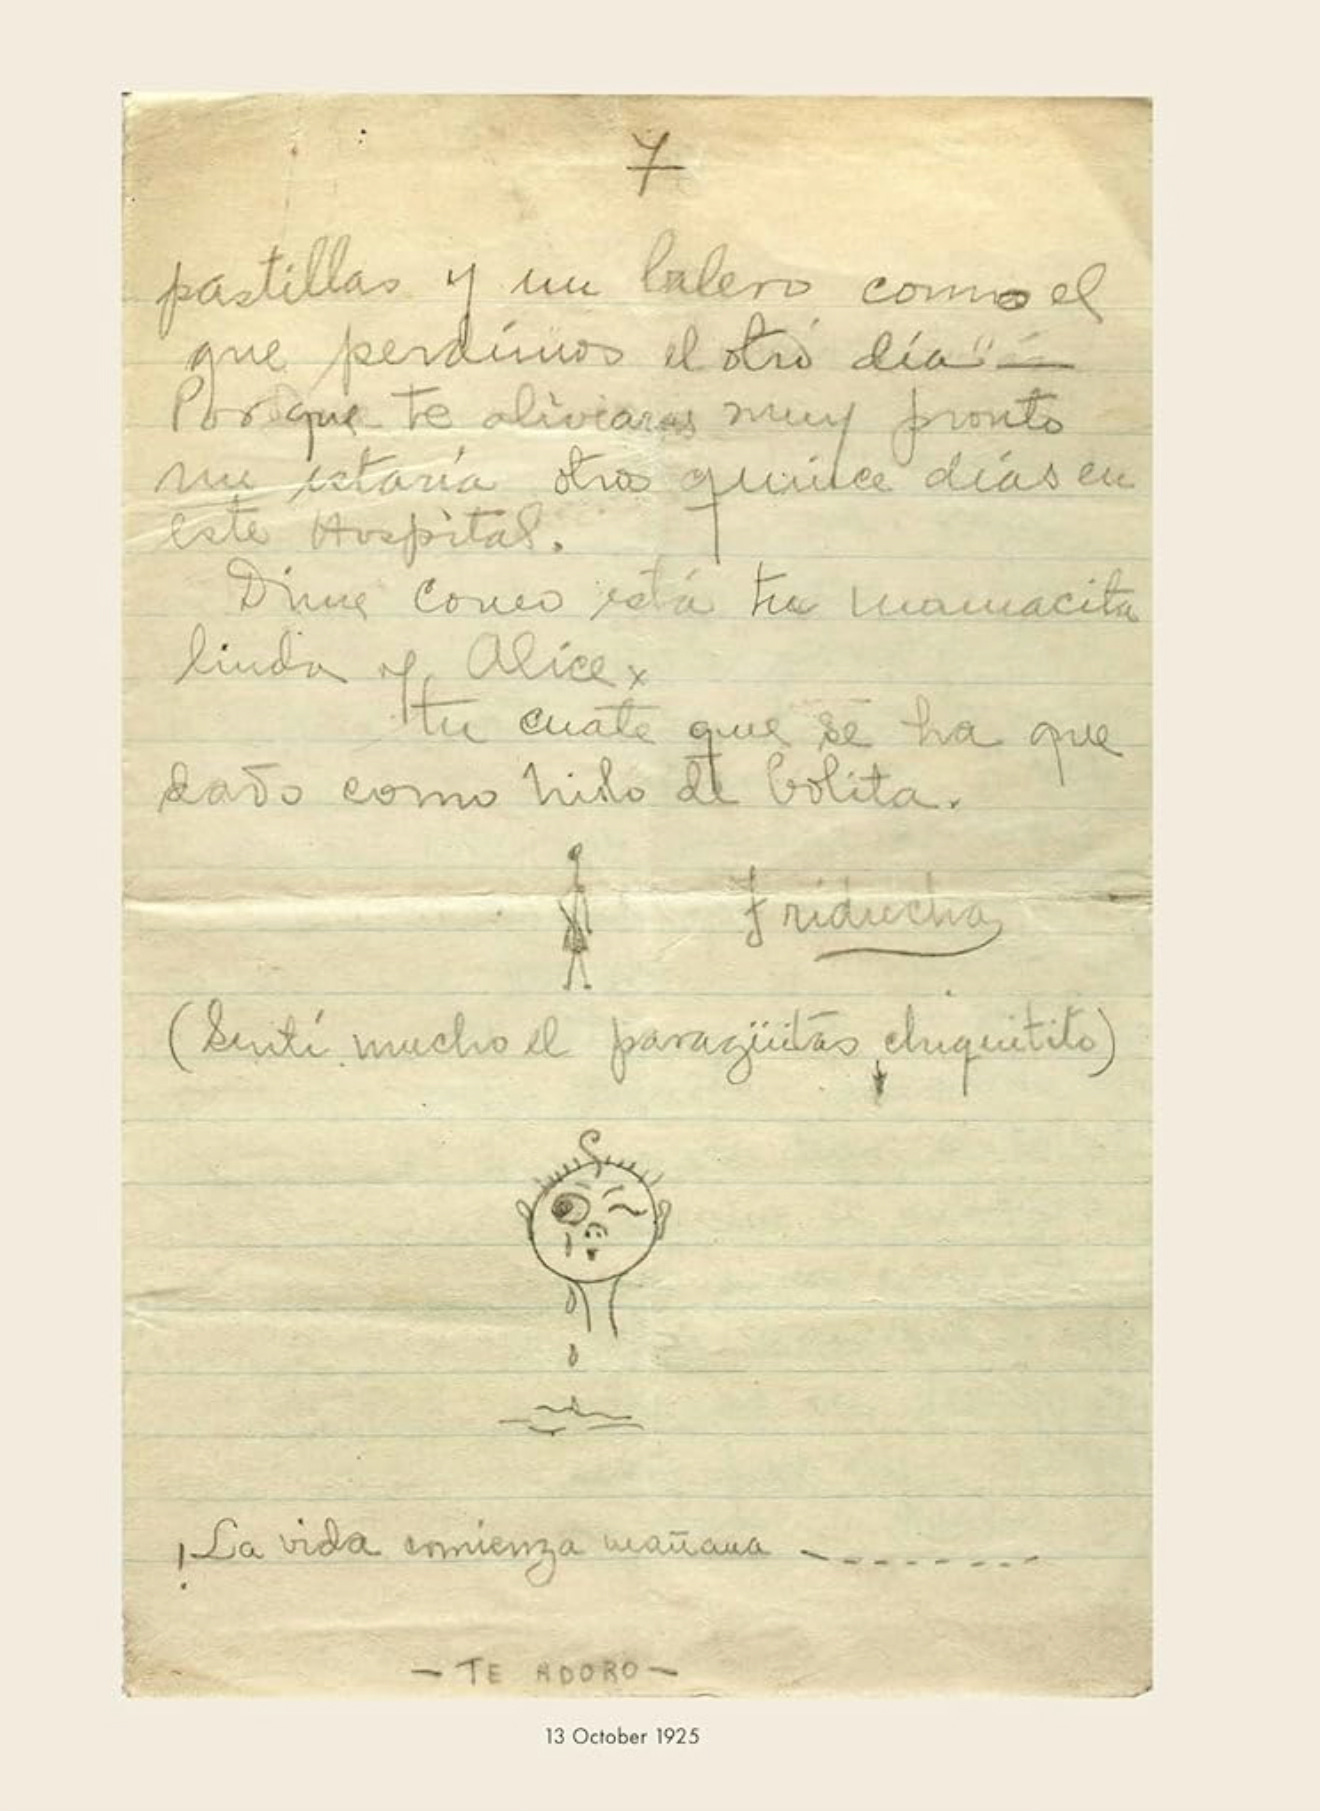 7
pastillas y un balero como el
que perdimos el otro día" —
Porque te aliviaras muy pronto
me estaría otros quince días en
este Hospital.
Dime como está tu mamacita
linda y Alice x
tu cuate que se ha que
dado como hilo de bolita.
Friducha
(Sentí mucho el paragüitas chiquitito)
¡La vida comienza mañana - - - - - - - -
– TE ADORO –
13 October 1925